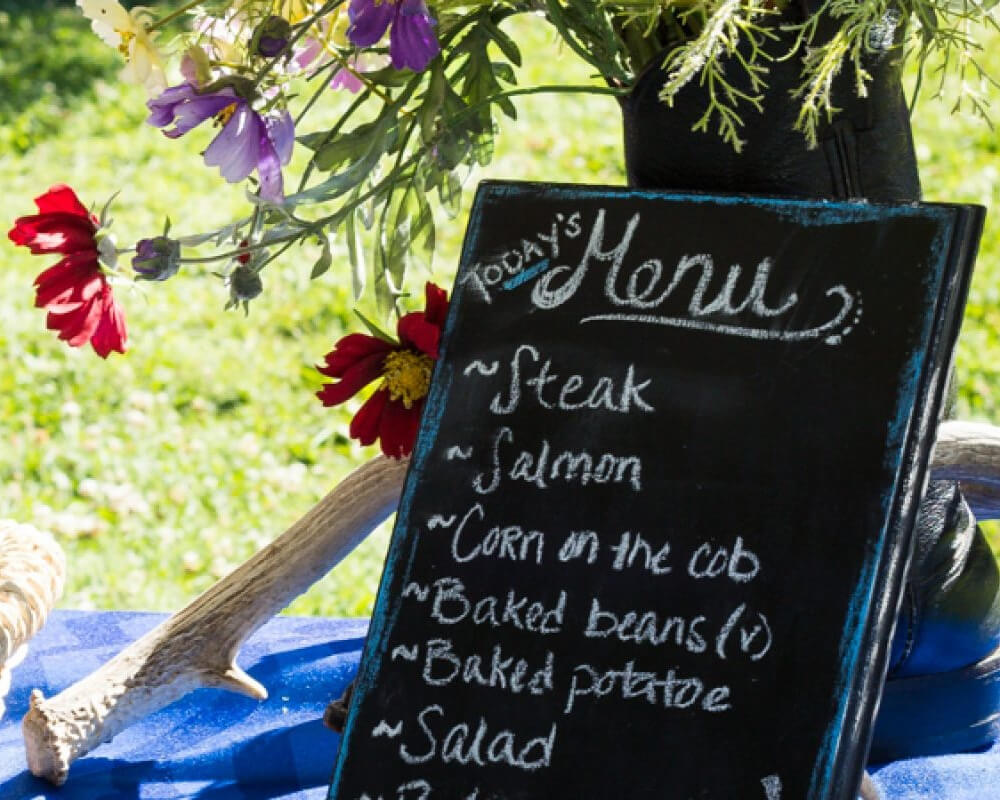 Today's Menu
~Steak
~Salmon
~Corn on the cob
~Baked beans (v)
~Baked potatoe
~Salad